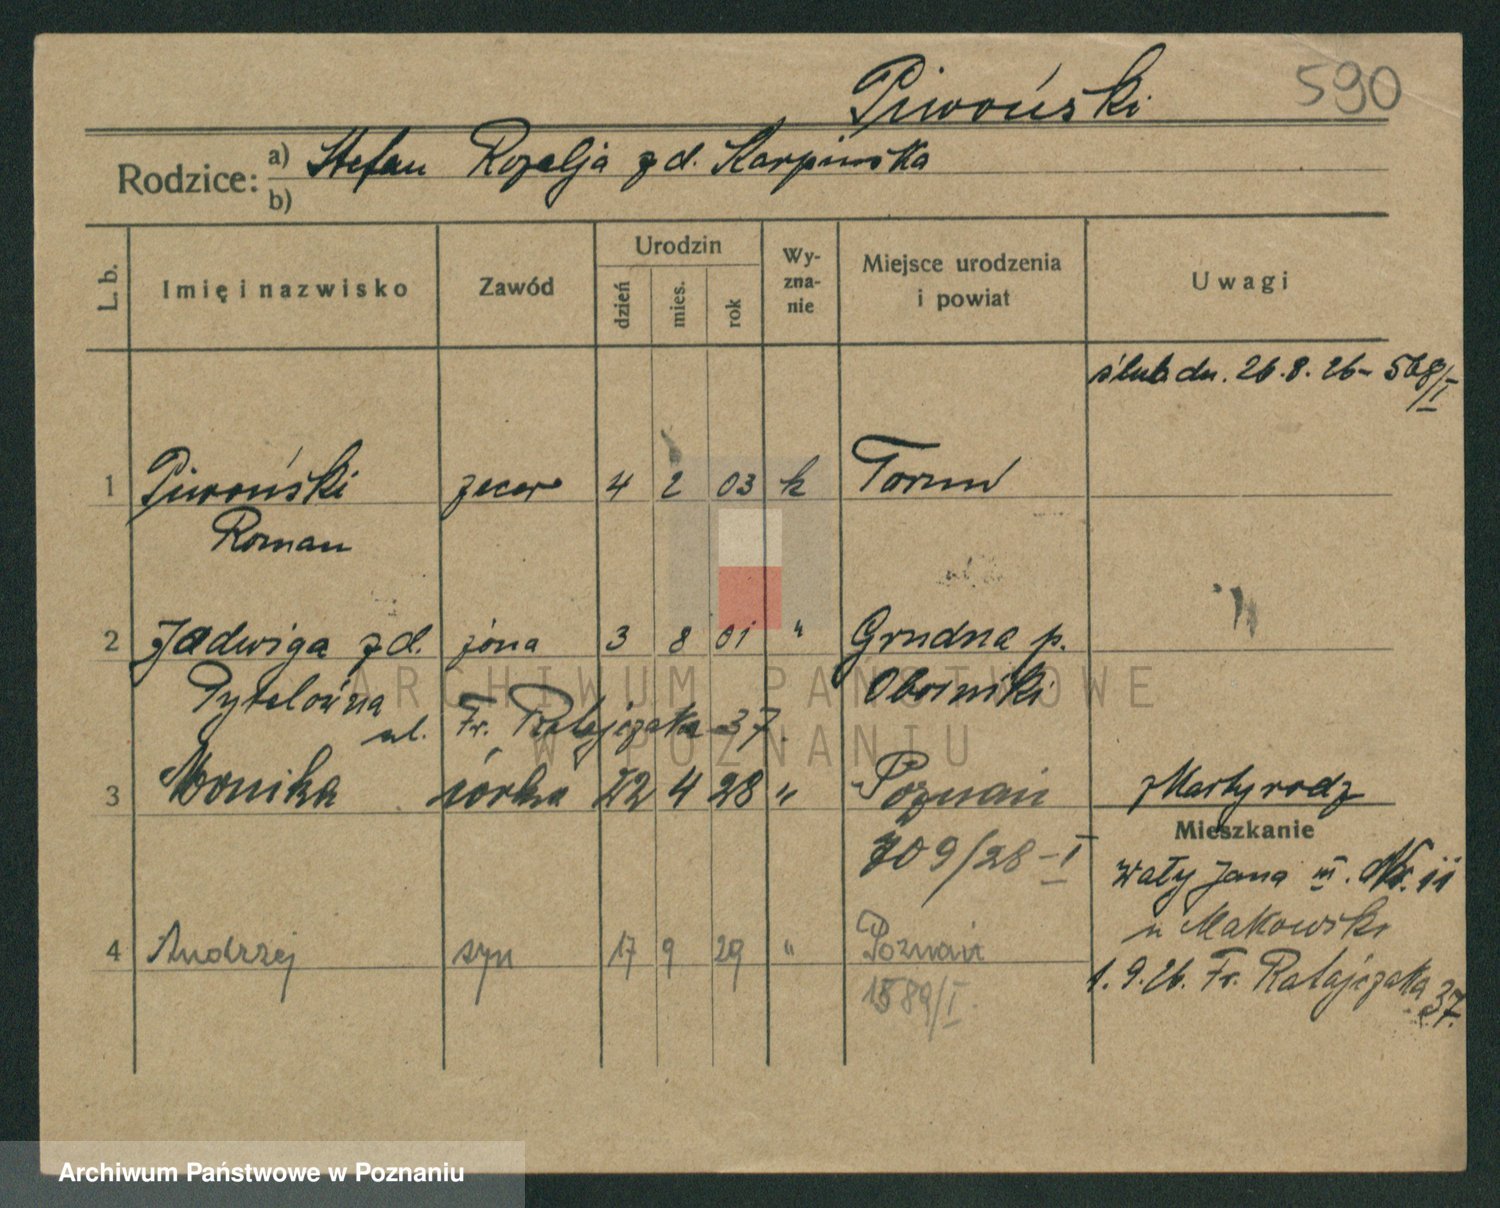 590
Piwoński
Rodzice: a) Stefan Rozalja z d. Karpińska
b)
L. b. Imię i nazwisko Zawód Urodzin dzień mies. rok Wyznanie Miejsce urodzenia i powiat Uwagi
ślub dn. 26.8.26 - 568/I
1 Piwoński zecer 4 2 03 k Toruń
Roman
2 Jadwiga z d. żona 3 8 01 " Grudna p.
Pytelówna Obornicki
ul. Fr. Ratajczaka 37.
3 Monika córka 22 4 28 " Poznań
709/28-I
Mieszkanie
Wały Jana III. Nr. 11
u Makowski
4 Andrzej syn 17 9 29 " Poznań
1589/I.
1.9.26. Fr. Ratajczaka 37.
ARCHIWUM PAŃSTWOWE
W POZNANIU
Archiwum Państwowe w Poznaniu